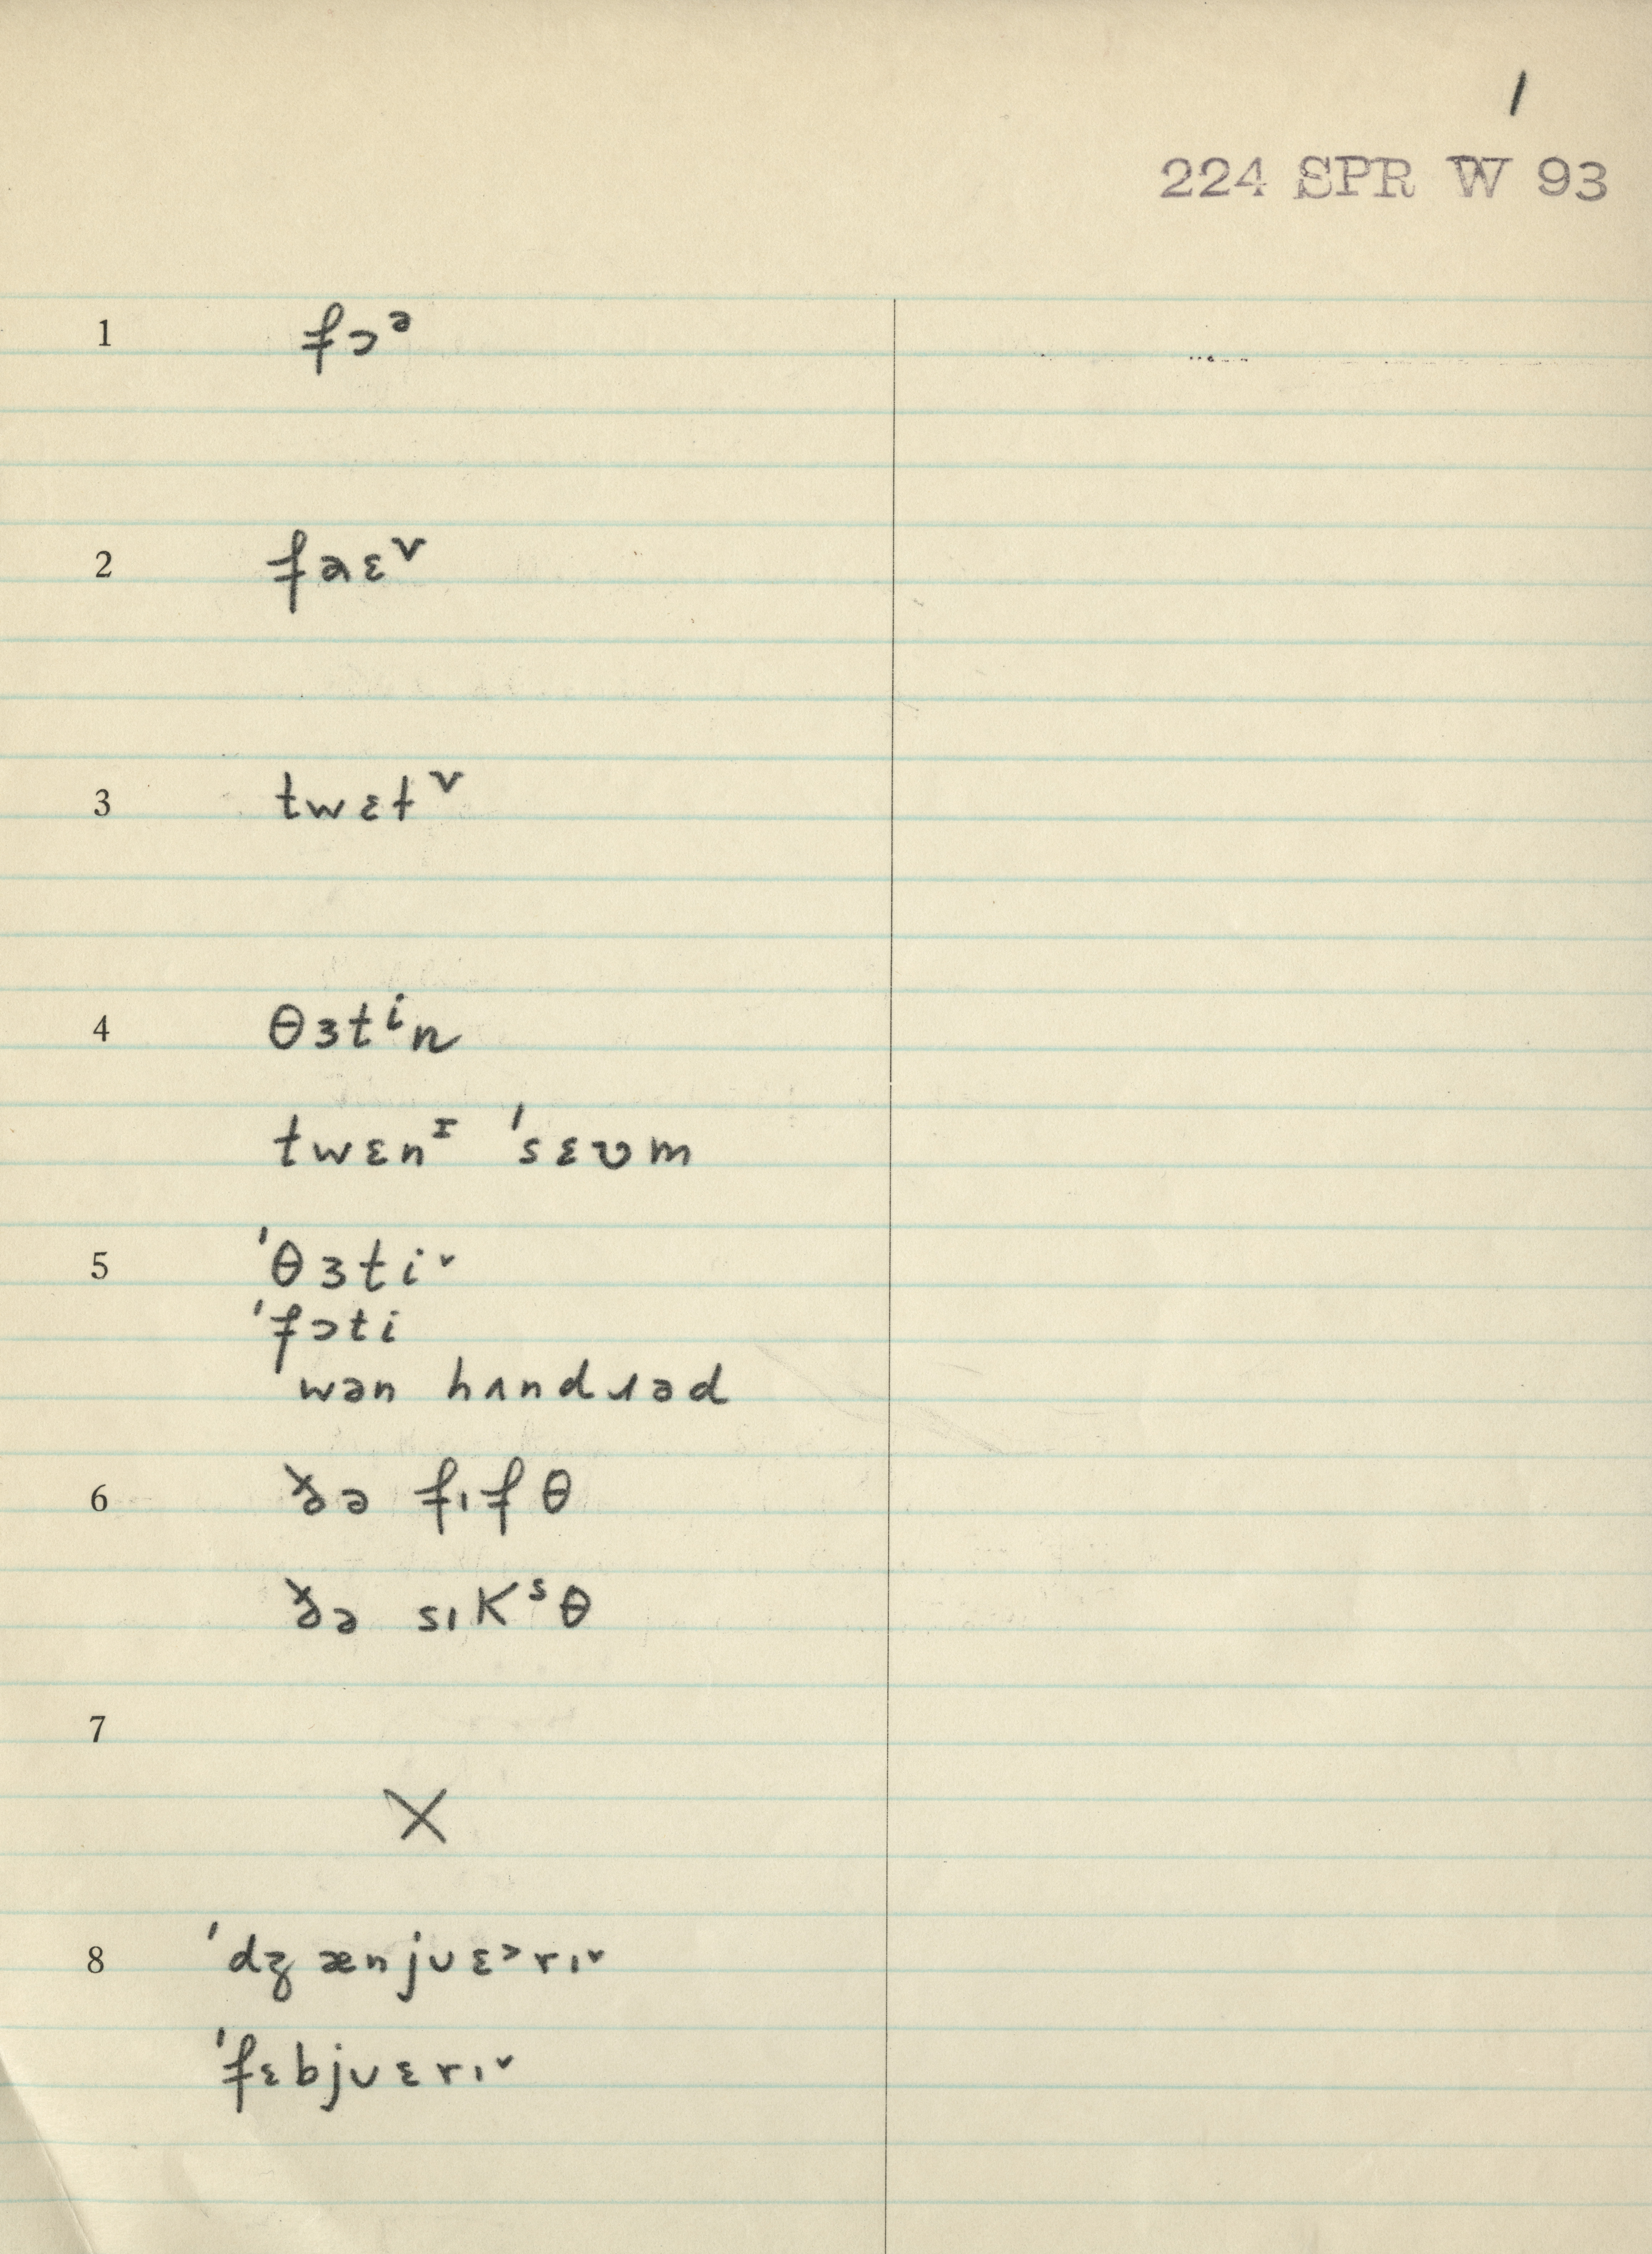 1
224 SPR W 93
1 fɔᵊ
2 faɛᵛ
3 twɛtᵛ
4 θɜtⁱn
twɛnᶦ ˈsɛʋm
5 ˈθɜti˅
ˈfɔti
ˈwən hʌndɹəd
6 ðə fɪfθ
ðə sɪkˢθ
7
X
8 ˈdʒænjʊɛᵊrɪ˅
ˈfɛbjʊɛrɪ˅